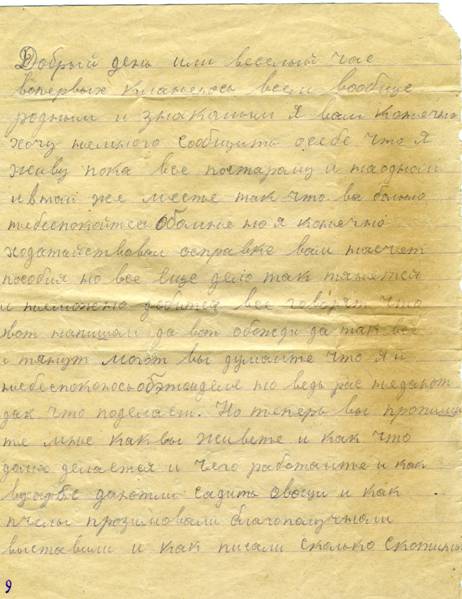 Добрый день или веселый час
вопервых кланеюсь всем вообще
родным и знакомым Я вам конечно
хочу немного сообщить осебе что Я
живу пока все постарому и наодном
итом же месте так что вы больно
небеспокойтес обомне но я конечно
ходатайствовал осправке вам насчет
пособия но все еще дело так тянется
и неможно добится все говорят что
вот напишом да вот обожди да так все
и тянут может вы думаите что Я и
небеспокоюсь обэтом деле но ведь рас недают
дак что поделаеш. Но теперь вы пропиши
те мне как вы живете и как что
дома делается и чего работаите и как
дают ли садить овощи и как
пчелы прозимовали благополучноли
выставили и как писали сколько скотины
9